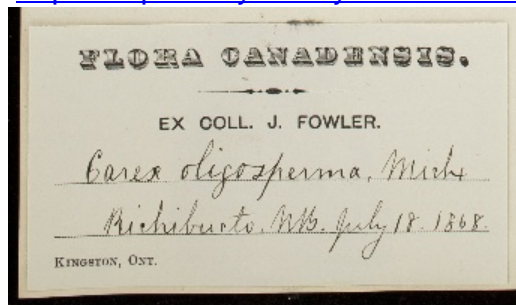 FLORA CANADENSIS.
EX COLL. J. FOWLER.
Carex oligosperma, Michx
Richibucto. NB. July 18. 1868.
KINGSTON, ONT.